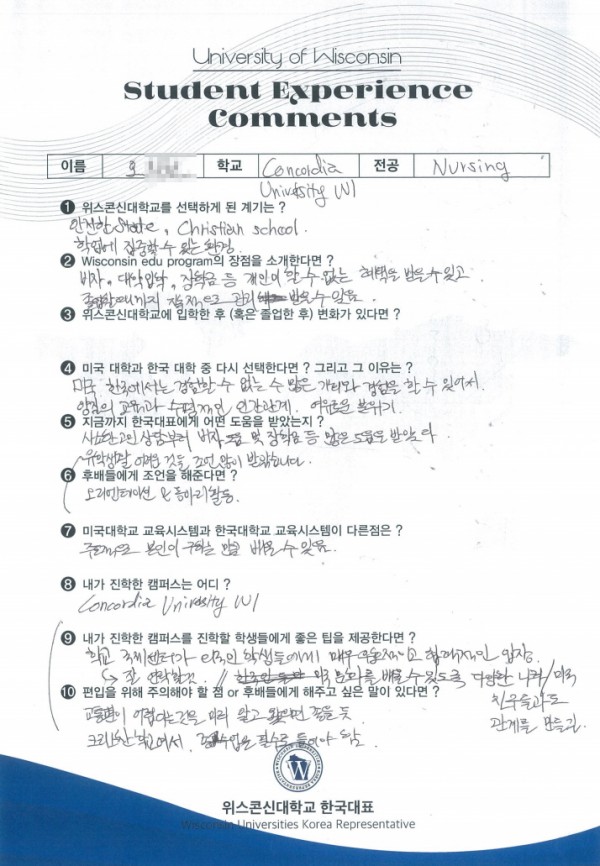 University of Wisconsin
Student Experience
Comments
이름 학교 Concordia 전공 Nursing
University WI
1 위스콘신대학교를 선택하게 된 계기는 ?
안전한 State, Christian school.
학업에 집중할 수 있는 환경.
2 Wisconsin edu program의 장점을 소개한다면 ?
비자, 대학입학, 장학금 등 개인이 알 수 없는 혜택을 받을 수 있고
졸업할때까지 관리 받을 수 있음.
3 위스콘신대학교에 입학한 후 (혹은 졸업한 후) 변화가 있다면 ?
4 미국 대학과 한국 대학 중 다시 선택한다면 ? 그리고 그 이유는 ?
미국 한국에서는 경험할 수 없는 수 많은 경험을 할 수 있어서.
양질의 교육과 수평적인 인간관계, 여유로운 분위기.
5 지금까지 한국대표에게 어떤 도움을 받았는지 ?
사소한 고민 상담부터 비자 및 장학금 등 많은 도움을 받았다
유학생활 어려운 것들 조언 많이 받았습니다.
6 후배들에게 조언을 해준다면 ?
오리엔테이션 & 동아리활동.
7 미국대학교 교육시스템과 한국대학교 교육시스템이 다른점은 ?
본인이 배울 수 있음.
8 내가 진학한 캠퍼스는 어디 ?
Concordia University WI
9 내가 진학한 캠퍼스를 진학할 학생들에게 좋은 팁을 제공한다면 ?
학교 국제센터가 외국인 학생들에게 매우 협조적인 입장.
→ 잘 연락할것. // 미국 문화를 배울 수 있도록 다양한 미국
10 편입을 위해 주의해야 할 점 or 후배들에게 해주고 싶은 말이 있다면 ?
친구들과도
관계를 만들길.
교통편이 어렵다는것을 미리 알고 왔으면 좋을 듯
크리스찬 학교여서, 수업을 필수로 들어야 함
위스콘신대학교 한국대표
Wisconsin Universities Korea Representative